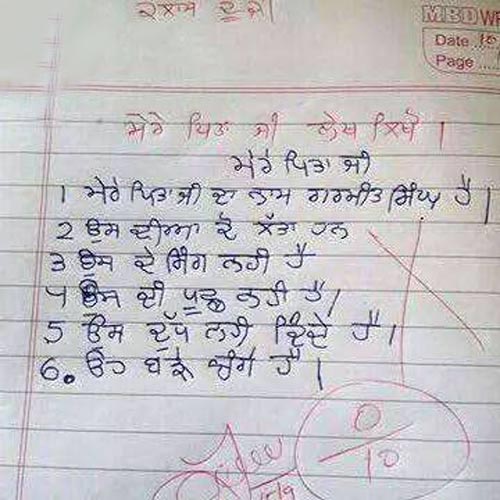 ਕਲਾਸ ਦੂਜੀ
MBD WR
Date
Page
ਮੇਰੇ ਪਿਤਾ ਜੀ ਲੇਖ ਲਿਖੋ।
ਮੇਰੇ ਪਿਤਾ ਜੀ
1 ਮੇਰੇ ਪਿਤਾ ਜੀ ਦਾ ਨਾਮ ਗਰਮੀਤ ਸਿੰਘ ਹੈ।
2 ਉਸ ਦੀਆ ਦੋ ਲੱਤਾ ਹਨ
3 ਉਸ ਦੇ ਸਿੰਗ ਨਹੀ ਹੈ
4 ਉਸ ਦੀ ਪੂਛ ਨਹੀ ਹੈ।
5 ਉਸ ਦੁੱਧ ਨਹੀ ਦਿੰਦੇ ਹੈ।
6. ਉਹ ਬਹੁਤ ਚੰਗੇ ਹੈ।
0/10